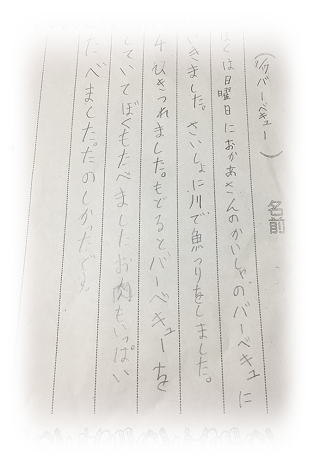 (バーベキュー)
名前
ぼくは日曜日におかあさんのかいしゃのバーベキューに
いきました。さいしょに川で魚つりをしました。
4ひきつれました。もどるとバーベキューを
していてぼくもたべましたお肉もいっぱい
たべました。たのしかった